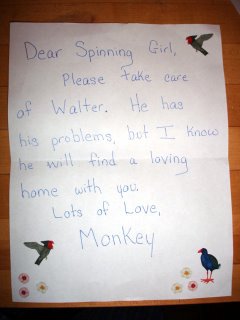 Dear Spinning Girl,
Please take care
of Walter. He has
his problems, but I know
he will find a loving
home with you.
Lots of Love,
Monkey